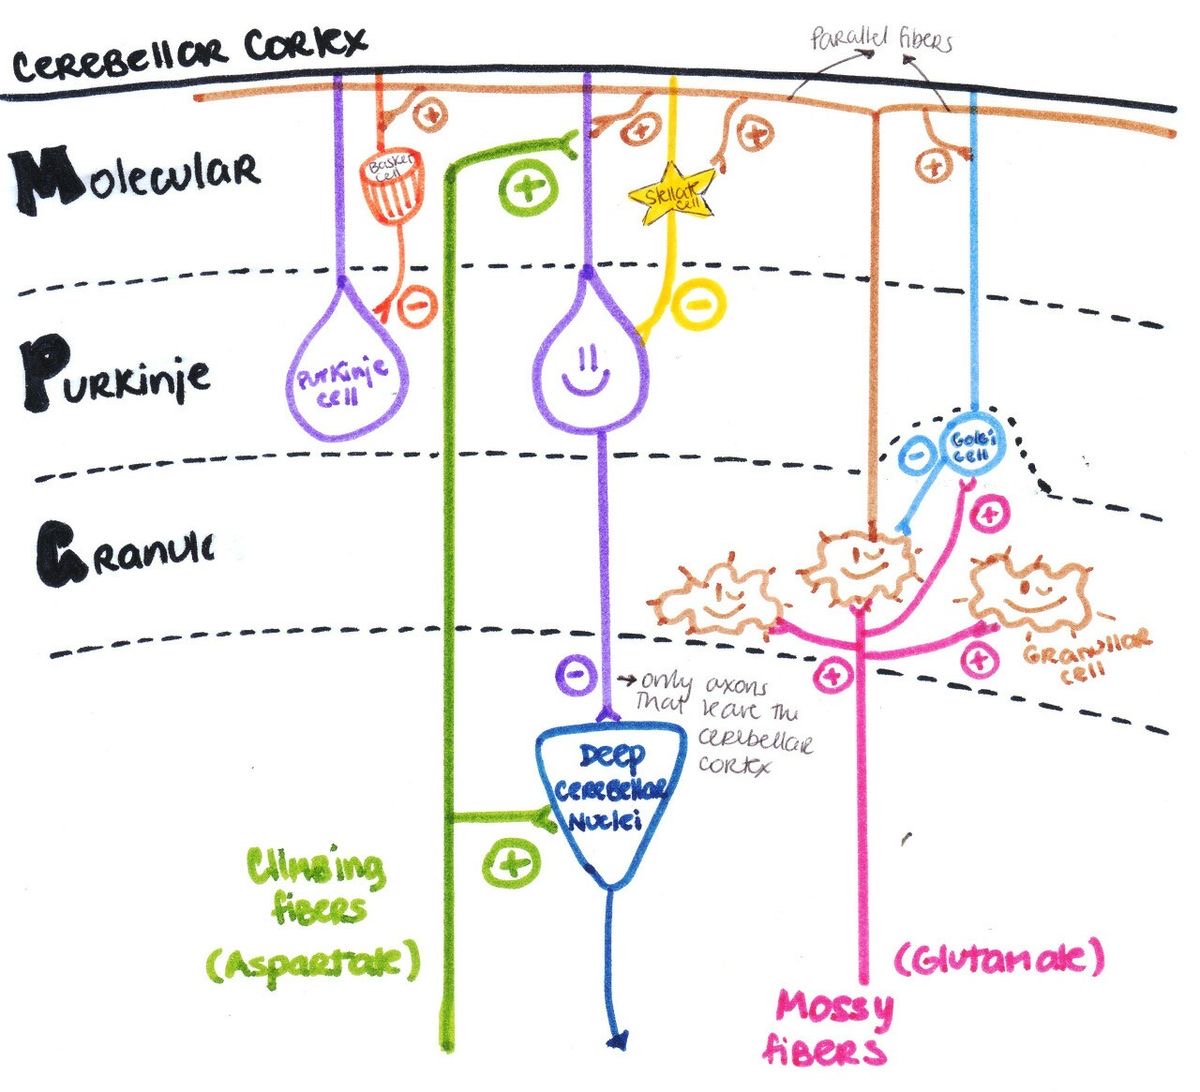 CEREBELLAR CORTEX
Parallel fibers
+
+
+
+
Molecular
Basket
cell
+
Stellate
cell
-
-
Purkinje
Purkinje
cell
Golgi
cell
-
+
Granule
Granular
cell
+
+
-
→ only axons
that leave the
cerebellar
cortex
Deep
cerebellar
Nuclei
+
Climbing
fibers
(Aspartate)
(Glutamate)
Mossy
fibers